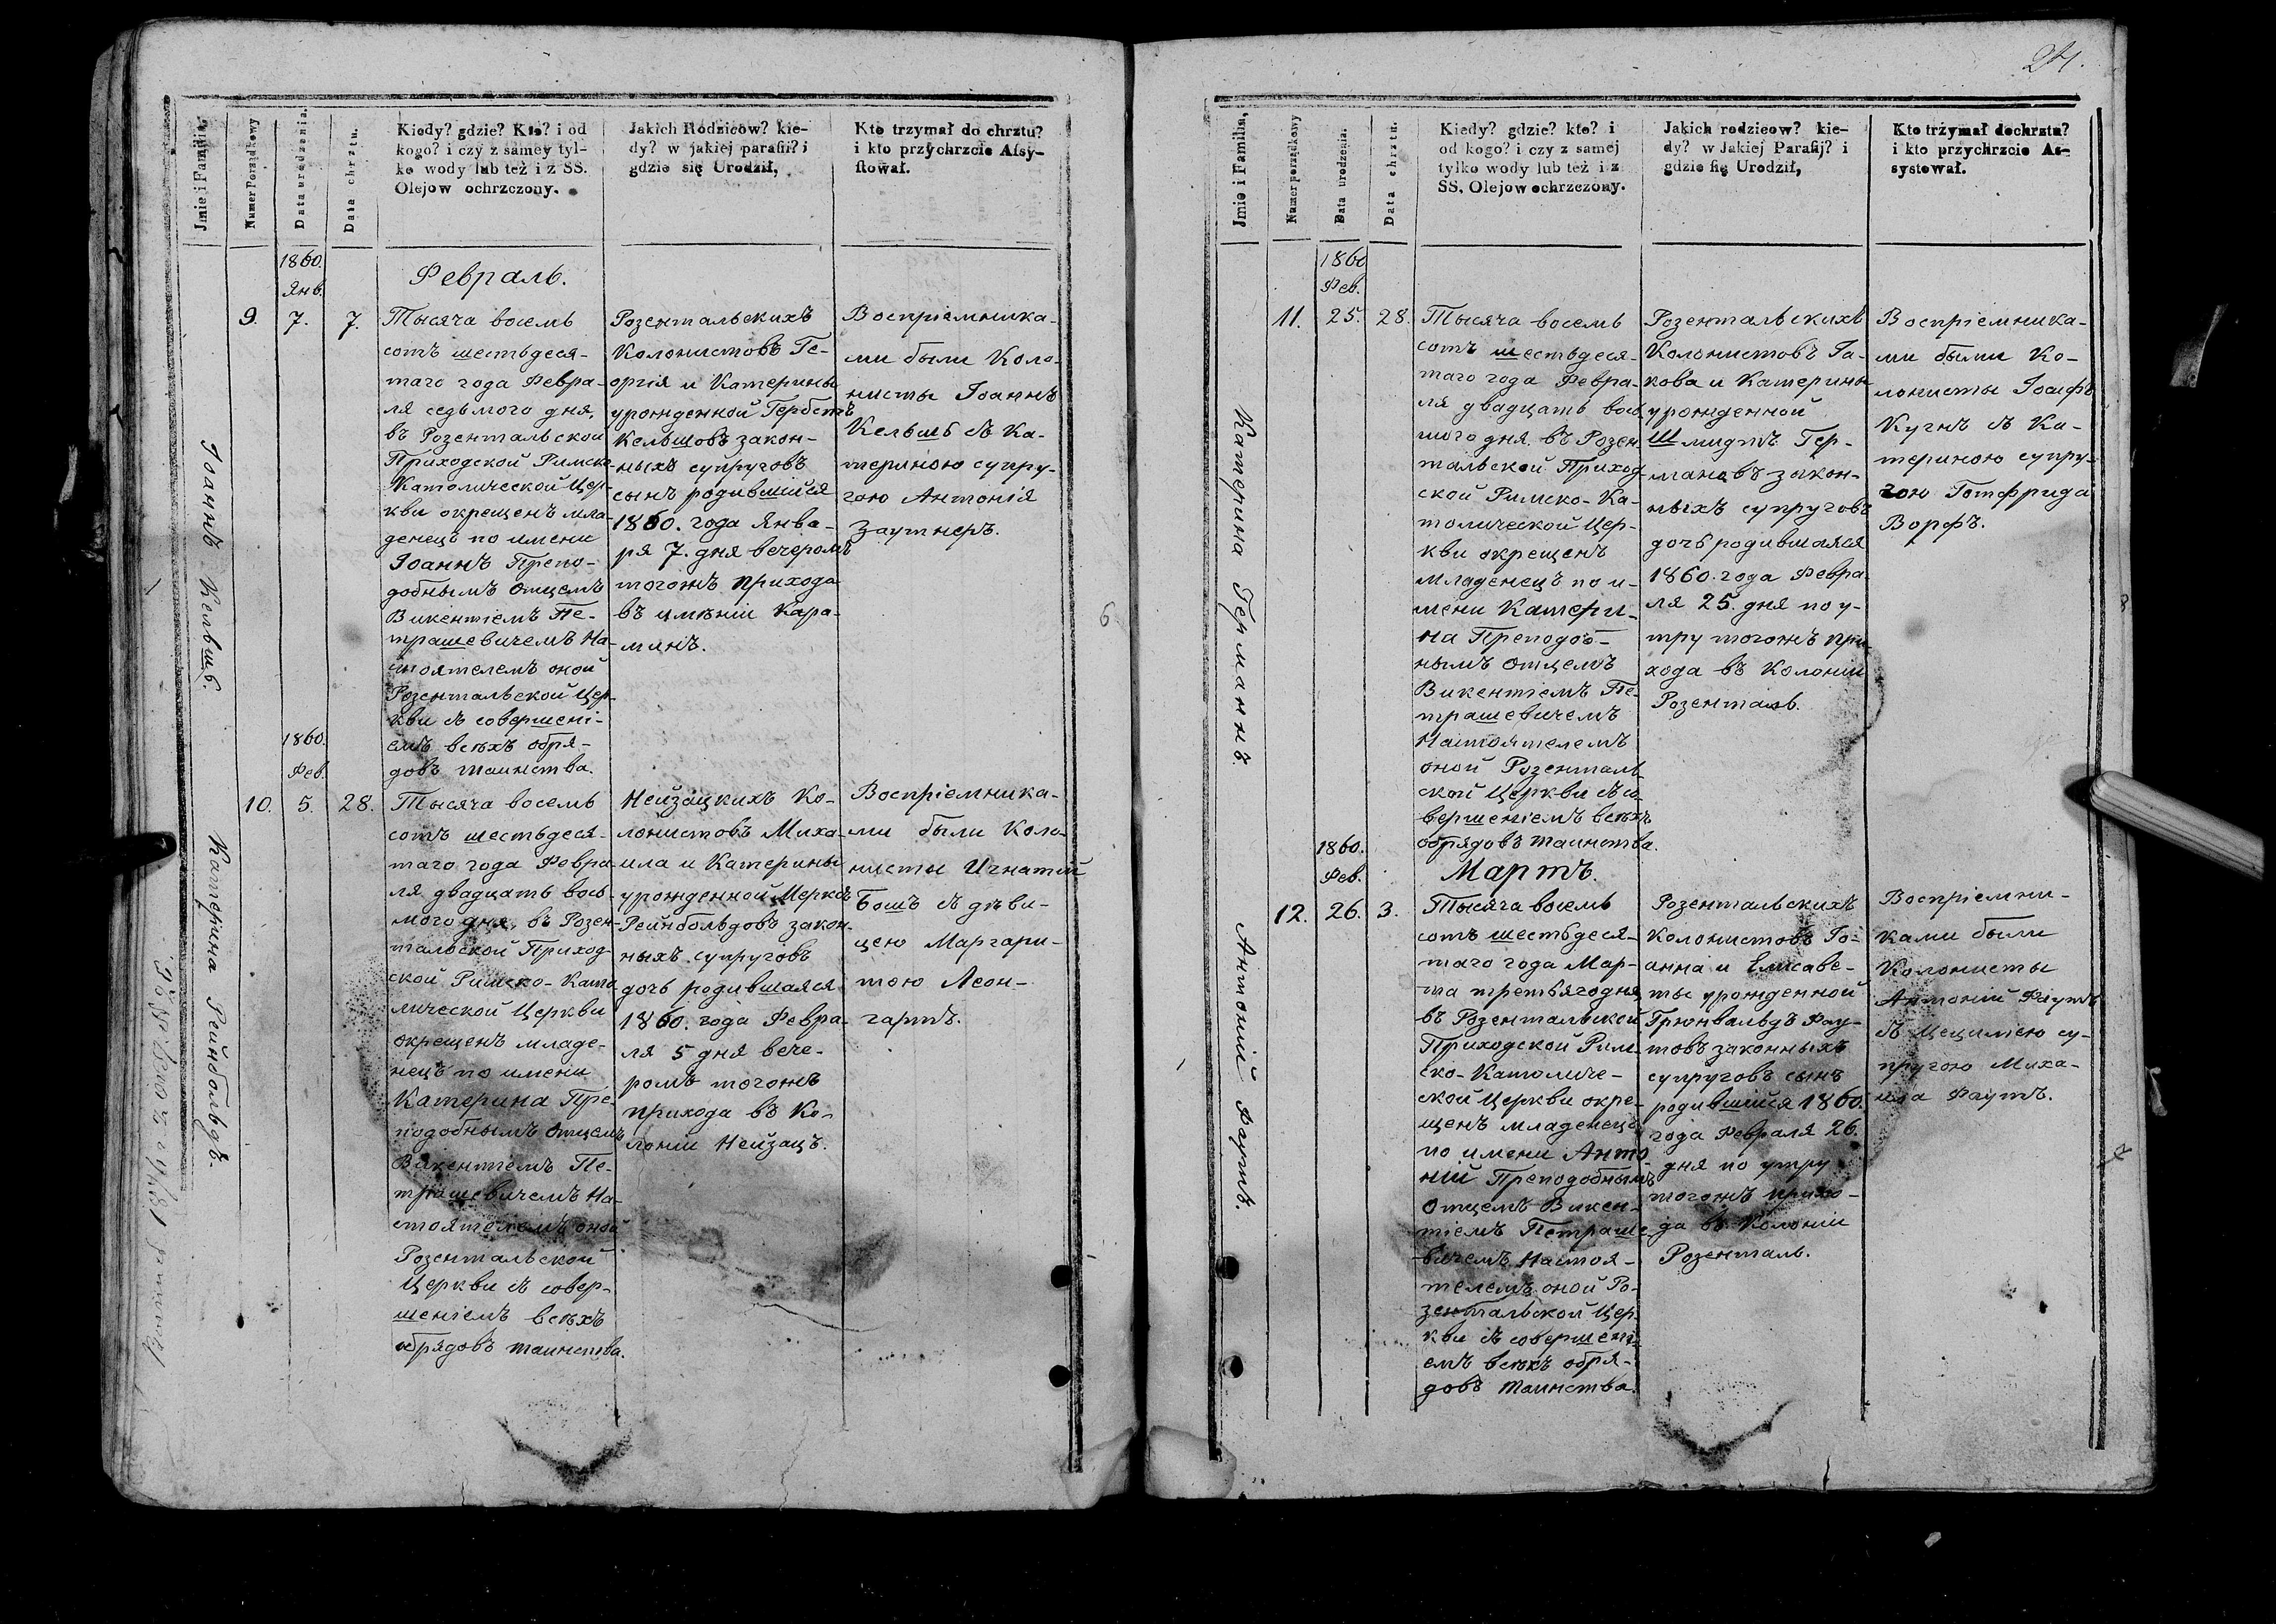 Jmie i Familia,
Numer Porządkowy
Data urodzenia.
Data chrztu.
Kiedy? gdzie? Kto? i od
kogo? i czy z samey tyl-
ko wody lub też i z SS.
Olejow ochrzczony.
Jakich Rodziców? kie-
dy? w jakiej parafii? i
gdzie się Urodził,
Kto trzymał do chrztu?
i kto przychrzcie Assy-
stował.
1860.
Янв.
Февраль.
Іоаннъ Кельшъ.
9.
7.
7.
Тысяча восемь
сотъ шестьдеся-
таго года Февра-
ля седьмого дня,
въ Розентальской
Приходской Римско-
Католической Цер-
кви окрещенъ мла-
денецъ по имени
Іоаннъ Препо-
добнымъ Отцемъ
Викентіемъ Пе-
трашевичемъ На-
стоятелемъ оной
Розентальской Цер-
кви съ совершені-
емъ всѣхъ обря-
довъ таинства.
Розентальскихъ
Колонистовъ Ге-
оргія и Катерины
урожденной Гербстъ
Кельшовъ закон-
ныхъ супруговъ
сынъ родившійся
1860. года Янва-
ря 7. дня вечеромъ
тогожъ прихода
въ имѣніи Кара-
минъ.
Воспріемника-
ми были Коло-
нисты Іоаннъ
Кельшъ съ Ка-
териною супру-
гою Антонія
Заутнеръ.
1860.
Фев.
Катерина Рейнбольдъ.
10.
5.
28.
Тысяча восемь
сотъ шестьдеся-
таго года Февра-
ля двадцать вось-
мого дня, въ Розен-
тальской Приход-
ской Римско-Като-
лической Церкви
окрещенъ младе-
нецъ по имени
Катерина Пре-
подобнымъ Отцемъ
Викентіемъ Пе-
трашевичемъ На-
стоятелемъ оной
Розентальской
Церкви съ совер-
шеніемъ всѣхъ
обрядовъ таинства.
Нейзацкихъ Ко-
лонистовъ Миха-
ила и Катерины
урожденной Меркъ
Рейнбольдовъ закон-
ныхъ супруговъ
дочь родившаяся
1860. года Февра-
ля 5 дня вече-
ромъ тогожъ
прихода въ Ко-
лоніи Нейзацъ.
Воспріемника-
ми были Коло-
нисты Игнатій
Бошъ съ дѣви-
цею Маргари-
тою Леон-
гартъ.
24.
Jmie i Familia,
Numer porządkowy
Data urodzenia.
Data chrztu.
Kiedy? gdzie? kto? i
od kogo? i czy z samej
tylko wody lub też i z
SS. Olejow ochrzczony.
Jakich rodzicow? kie-
dy? w Jakiej Parafij? i
gdzie się Urodził,
Kto trzymał dochrztu?
i kto przychrzcie As-
systował.
1860
Фев.
Катерина Германнъ.
11.
25.
28.
Тысяча восемь
сотъ шестьдеся-
таго года Февра-
ля двадцать вось-
мого дня, въ Розен-
тальской Приход-
ской Римско-Ка-
толической Цер-
кви окрещенъ
младенецъ по и-
мени Катери-
на Преподоб-
нымъ Отцемъ
Викентіемъ Пе-
трашевичемъ
Настоятелемъ
оной Розенталь-
ской Церкви съ со-
вершеніемъ всѣхъ
обрядовъ таинства.
Розентальскихъ
Колонистовъ Іа-
кова и Катерины
урожденной
Шмидтъ Гер-
мановъ закон-
ныхъ супруговъ
дочь родившаяся
1860. года Февра-
ля 25. дня по у-
тру тогожъ при-
хода въ Колоніи
Розенталь.
Воспріемника-
ми были Ко-
лонисты Іосифъ
Кугнъ съ Ка-
териною супру-
гою Готфрида
Ворфъ.
1860.
Фев.
Мартъ.
Антоній Фаутъ.
12.
26.
3.
Тысяча восемь
сотъ шестьдеся-
таго года Мар-
та третьяго дня,
въ Розентальской
Приходской Рим-
ско-Католиче-
ской Церкви окре-
щенъ младенецъ
по имени Анто-
ній Преподобнымъ
Отцемъ Викен-
тіемъ Петраше-
вичемъ Настоя-
телемъ оной Ро-
зентальской Цер-
кви съ совершені-
емъ всѣхъ обря-
довъ таинства.
Розентальскихъ
Колонистовъ Іо-
анна и Елисаве-
ты урожденной
Грюнвальдъ Фау-
товъ законныхъ
супруговъ сынъ
родившійся 1860.
года Февраля 26.
дня по утру
тогожъ прихо-
да въ Колоніи
Розенталь.
Воспріемни-
ками были
Колонисты
Антоній Фаутъ
съ Цециліею су-
пругою Миха-
ила Фаутъ.